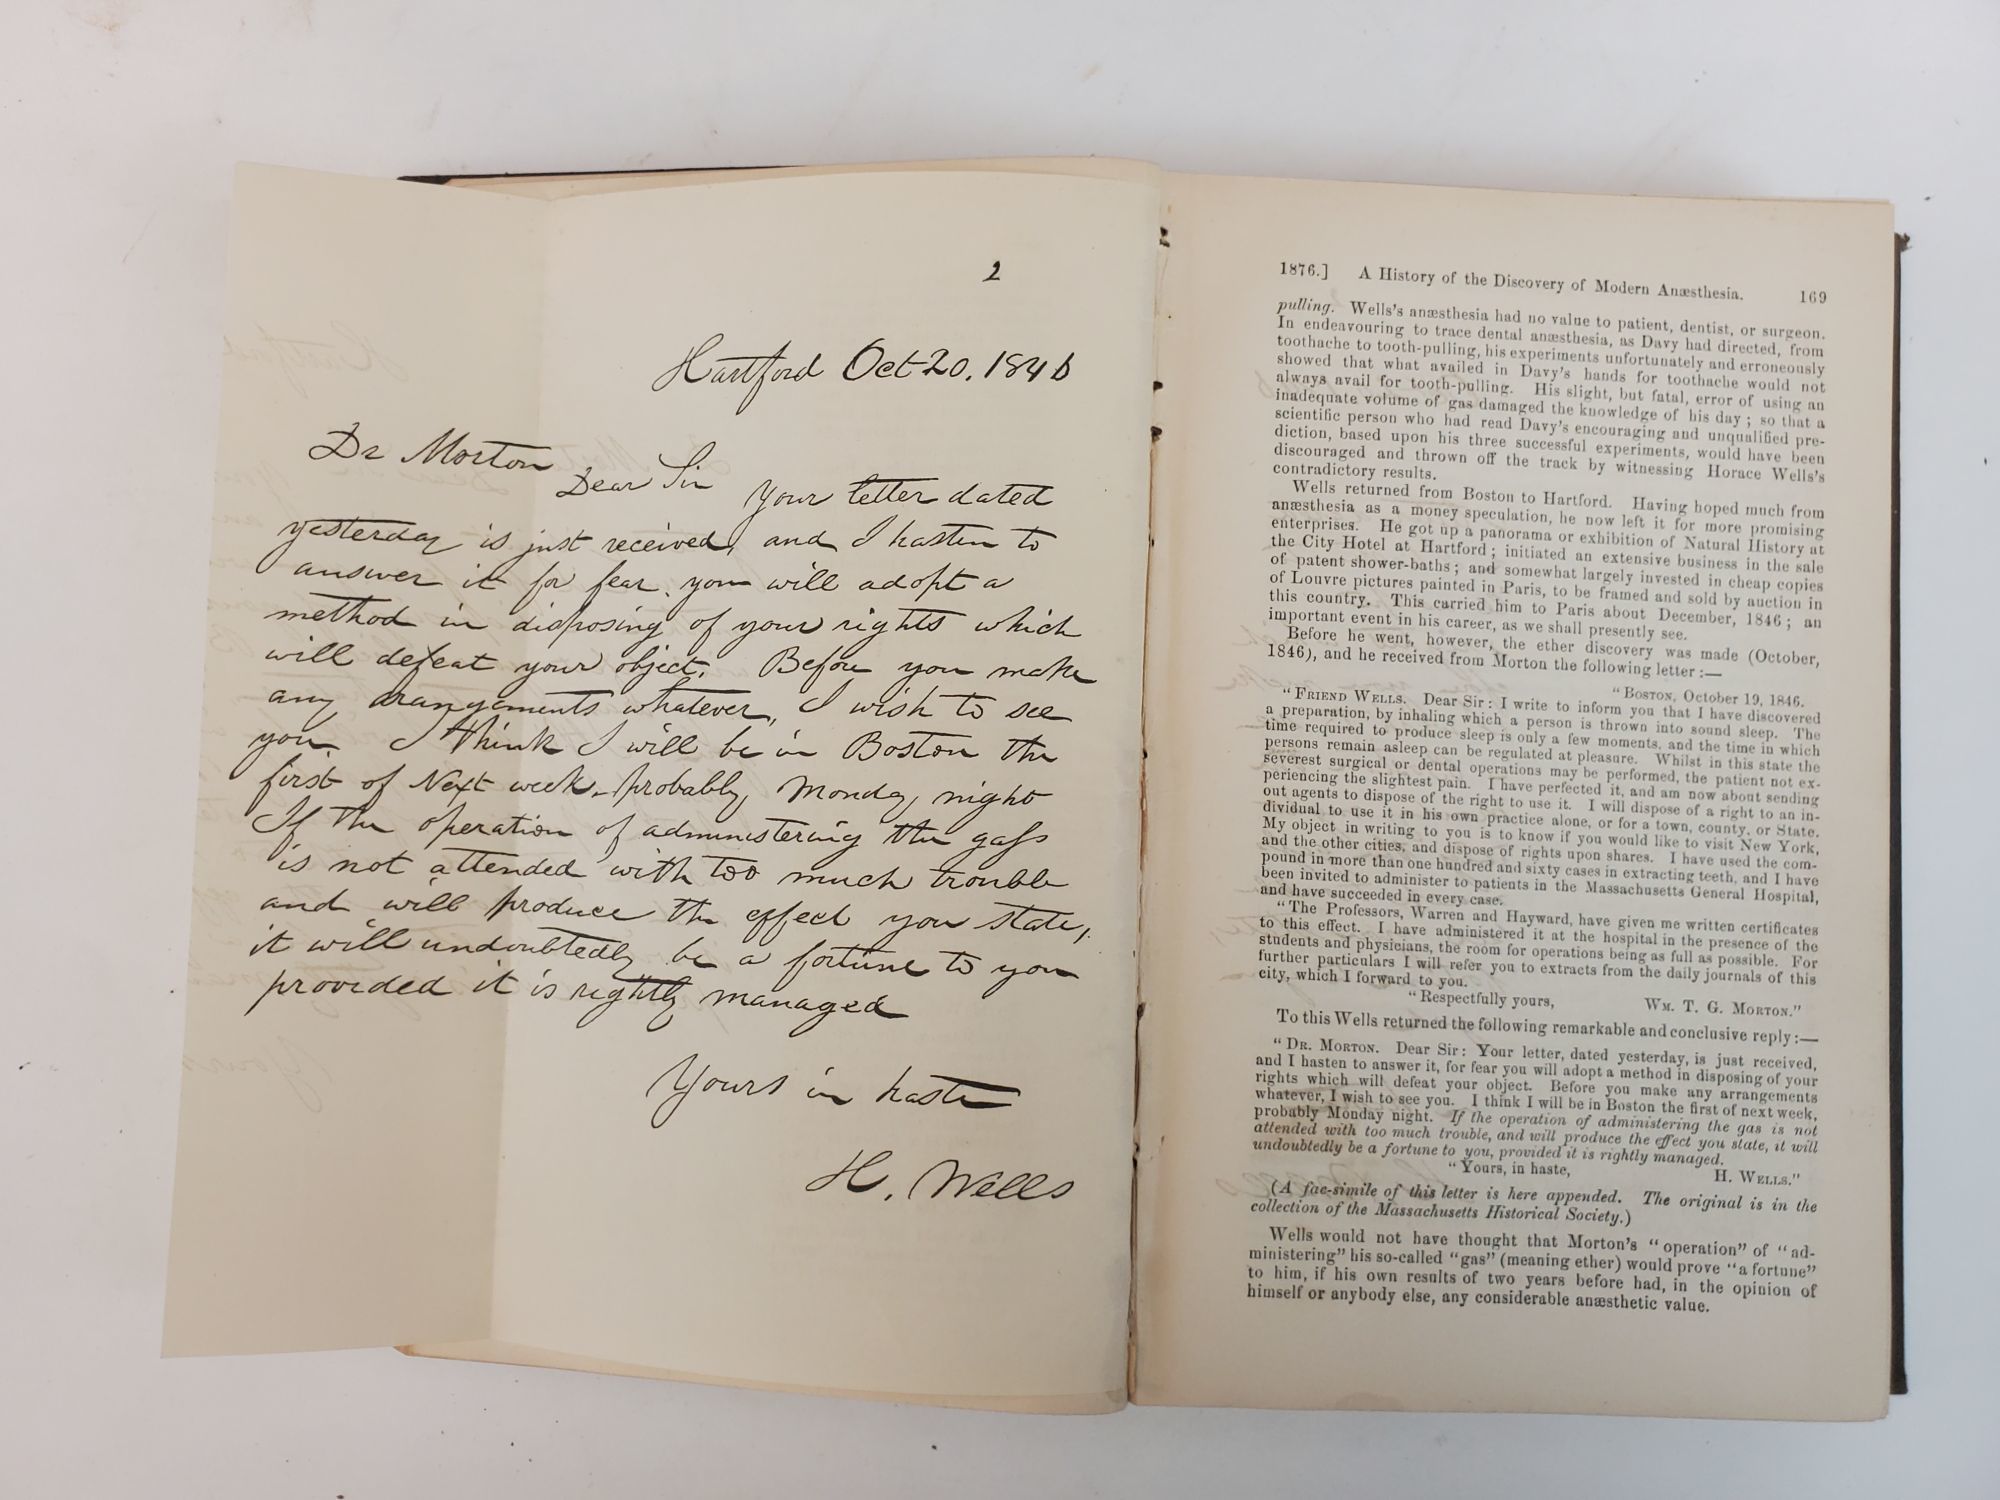 2
Hartford Oct 20. 1846
Dr Morton
Dear Sir Your letter dated
yesterday is just received, and I hasten to
answer it for fear you will adopt a
method in disposing of your rights which
will defeat your object. Before you make
any arangements whatever, I wish to see
you. I think I will be in Boston the
first of Next week - probably, Monday, night
If the operation of administering the gass
is not attended with too much trouble
and will produce the effect you state,
it will undoubtedly be a fortune to you
provided it is rightly managed
Yours in haste
H. Wells
1876.] A History of the Discovery of Modern Anæsthesia. 169
pulling. Wells's anæsthesia had no value to patient, dentist, or surgeon.
In endeavouring to trace dental anæsthesia, as Davy had directed, from
toothache to tooth-pulling, his experiments unfortunately and erroneously
showed that what availed in Davy's hands for toothache would not
always avail for tooth-pulling. His slight, but fatal, error of using an
inadequate volume of gas damaged the knowledge of his day; so that a
scientific person who had read Davy's encouraging and unqualified pre-
diction, based upon his three successful experiments, would have been
discouraged and thrown off the track by witnessing Horace Wells's
contradictory results.
Wells returned from Boston to Hartford. Having hoped much from
anæsthesia as a money speculation, he now left it for more promising
enterprises. He got up a panorama or exhibition of Natural History at
the City Hotel at Hartford; initiated an extensive business in the sale
of patent shower-baths; and somewhat largely invested in cheap copies
of Louvre pictures painted in Paris, to be framed and sold by auction in
this country. This carried him to Paris about December, 1846; an
important event in his career, as we shall presently see.
Before he went, however, the ether discovery was made (October,
1846), and he received from Morton the following letter:—
"Boston, October 19, 1846.
"Friend Wells. Dear Sir: I write to inform you that I have discovered
a preparation, by inhaling which a person is thrown into sound sleep. The
time required to produce sleep is only a few moments, and the time in which
persons remain asleep can be regulated at pleasure. Whilst in this state the
severest surgical or dental operations may be performed, the patient not ex-
periencing the slightest pain. I have perfected it, and am now about sending
out agents to dispose of the right to use it. I will dispose of a right to an in-
dividual to use it in his own practice alone, or for a town, county, or State.
My object in writing to you is to know if you would like to visit New York,
and the other cities, and dispose of rights upon shares. I have used the com-
pound in more than one hundred and sixty cases in extracting teeth, and I have
been invited to administer to patients in the Massachusetts General Hospital,
and have succeeded in every case.
"The Professors, Warren and Hayward, have given me written certificates
to this effect. I have administered it at the hospital in the presence of the
students and physicians, the room for operations being as full as possible. For
further particulars I will refer you to extracts from the daily journals of this
city, which I forward to you.
"Respectfully yours, Wm. T. G. Morton."
To this Wells returned the following remarkable and conclusive reply:—
"Dr. Morton. Dear Sir: Your letter, dated yesterday, is just received,
and I hasten to answer it, for fear you will adopt a method in disposing of your
rights which will defeat your object. Before you make any arrangements
whatever, I wish to see you. I think I will be in Boston the first of next week,
probably Monday night. If the operation of administering the gas is not
attended with too much trouble, and will produce the effect you state, it will
undoubtedly be a fortune to you, provided it is rightly managed.
"Yours, in haste, H. Wells."
(A fac-simile of this letter is here appended. The original is in the
collection of the Massachusetts Historical Society.)
Wells would not have thought that Morton's "operation" of "ad-
ministering" his so-called "gas" (meaning ether) would prove "a fortune"
to him, if his own results of two years before had, in the opinion of
himself or anybody else, any considerable anæsthetic value.